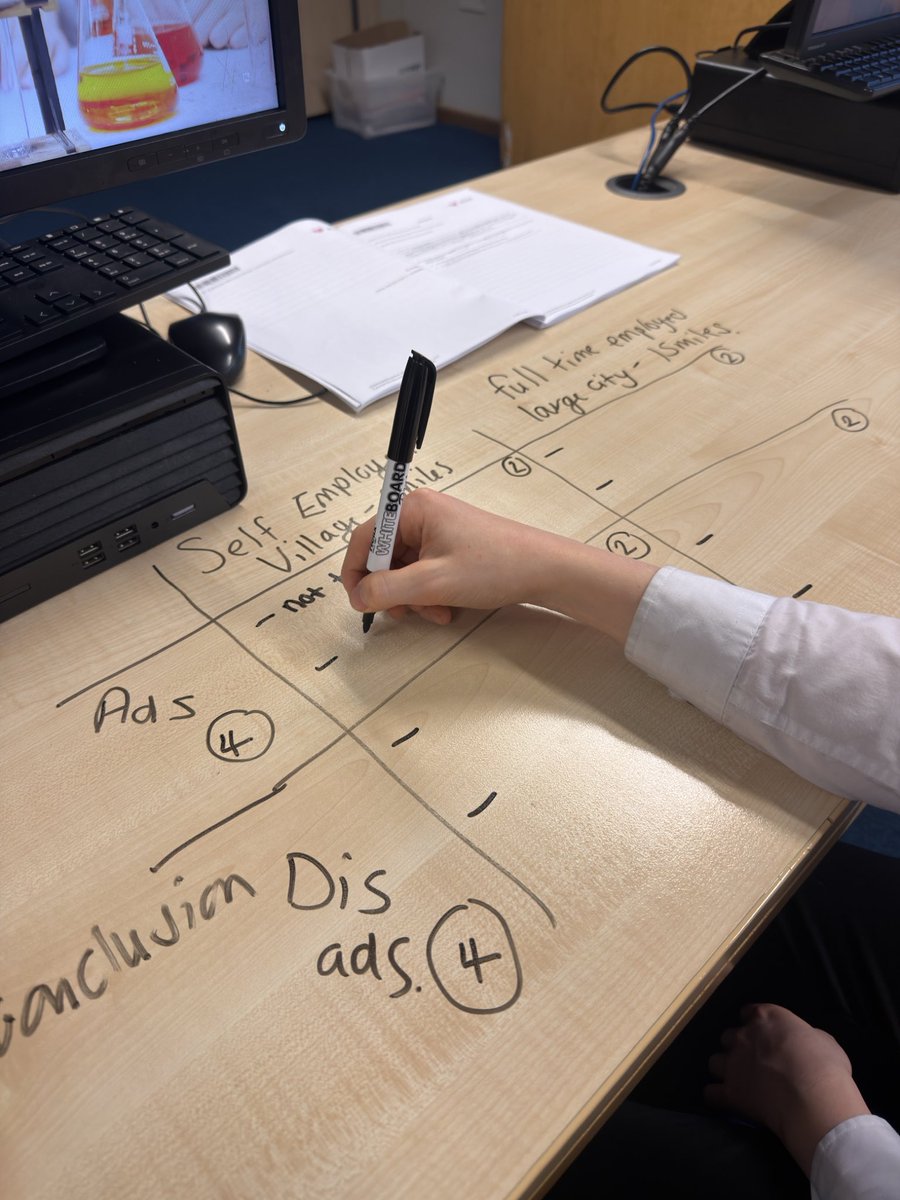 full time employed
large city - 15miles.
②
②
Self Employ
Village - miles
②
②
- not
Ads
④
Dis
ads.
④
Conclusion
WHITEBOARD